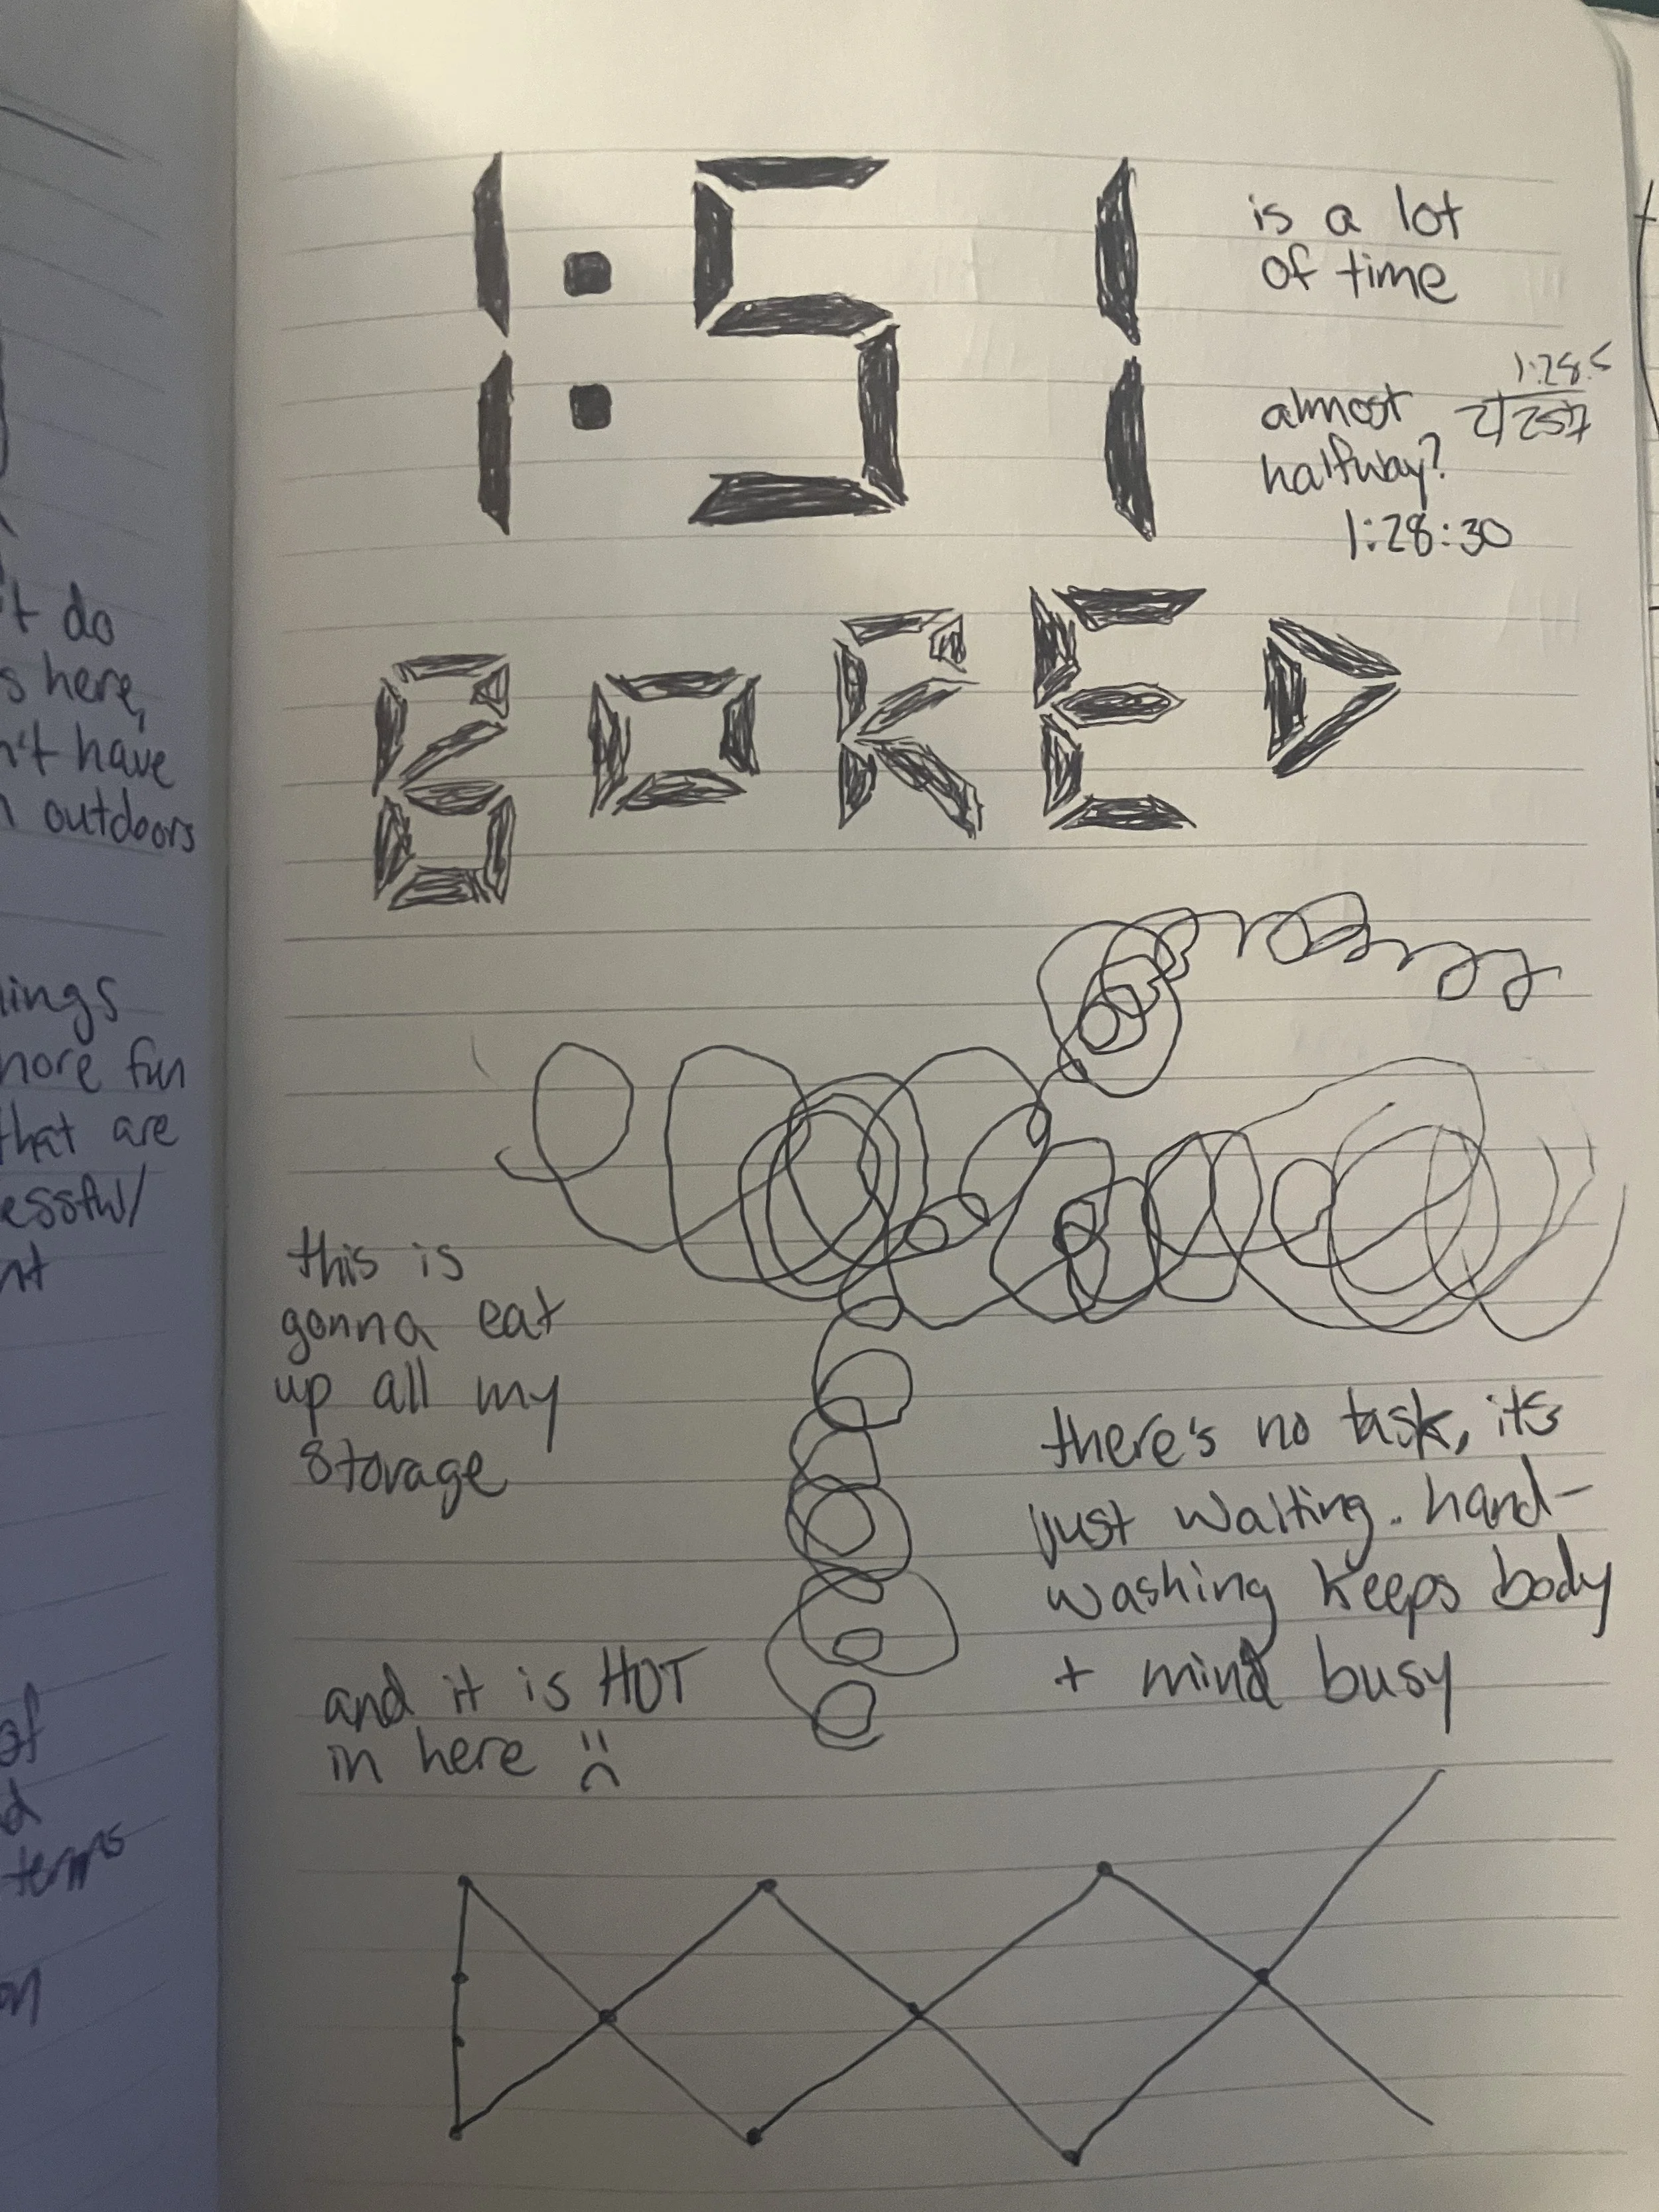 1:51
is a lot
of time
almost
halfway?
1:28.5
2 257
1:28:30
BORED
this is
gonna eat
up all my
storage
there's no task, its
just waiting. hand-
washing keeps body
+ mind busy
and it is HOT
in here
t do
s here,
n't have
outdoors
ings
more fun
that are
essful
nt
of
d
terms
on